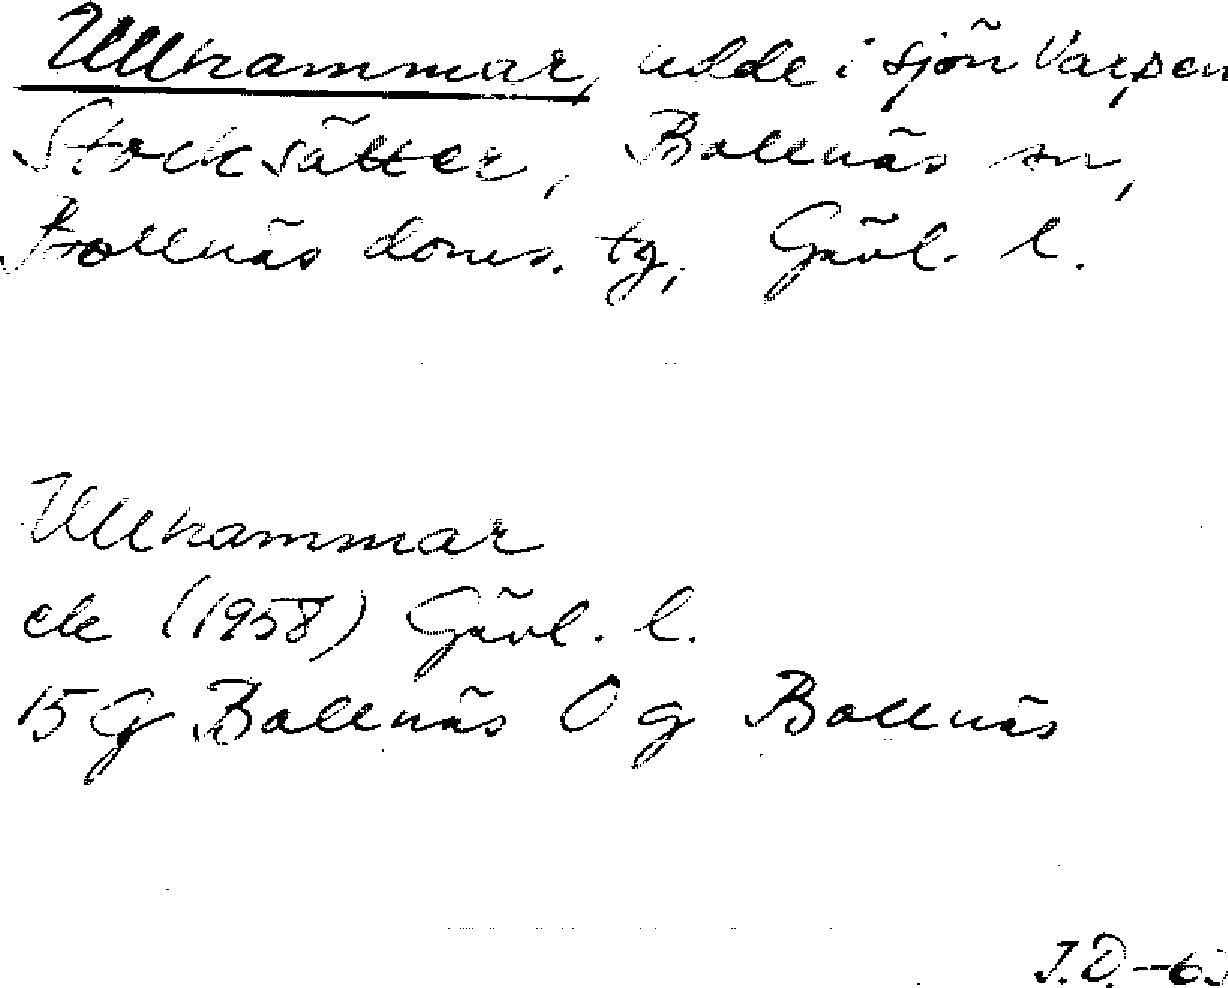 Ullhammar, udde i sjön Varpen
Stocksätter, Bollnäs sn,
Bollnäs doms. tg, Gävl. l.
Ullhammar
ek (1958) Gävl. l.
15G Bollnäs O g Bollnäs
J.D.-63